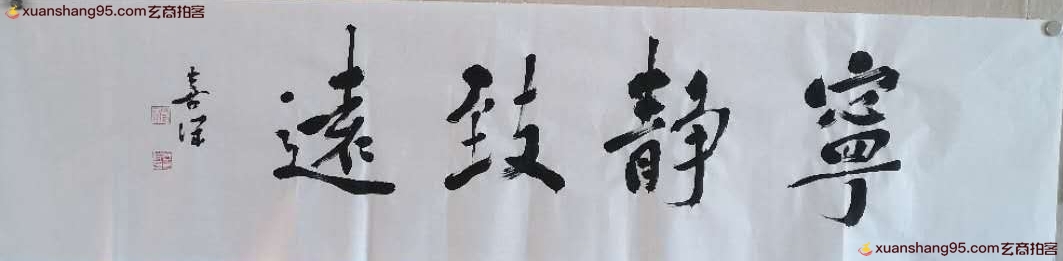 xuanshang95.com玄商拍客
寧靜致遠
喜
xuanshang95.com玄商拍客